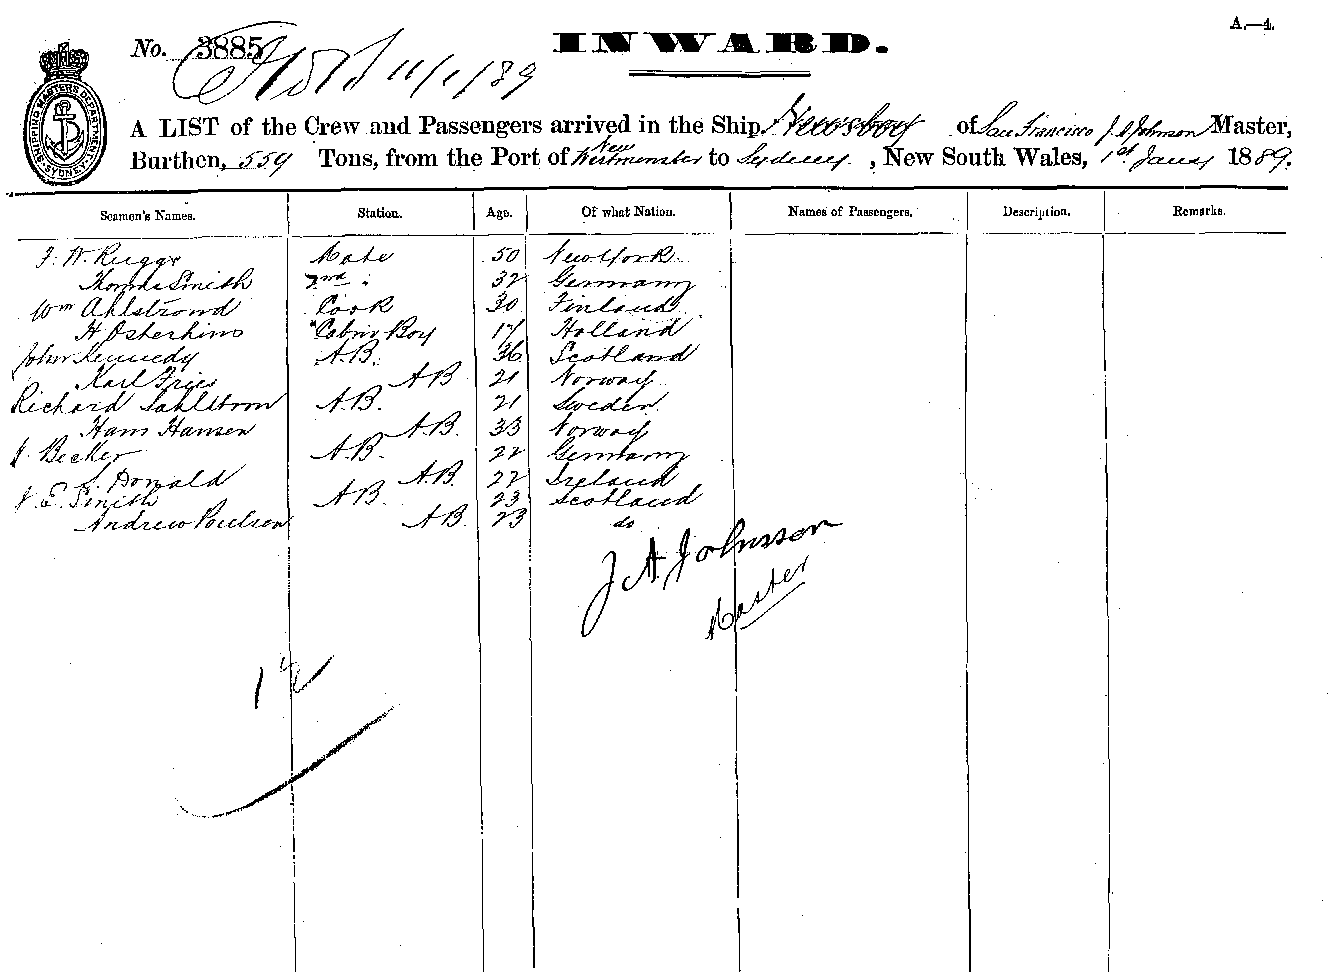 A.—4.
No. 3885
INWARD.
11/1/89
SHIPPING MASTERS DEPARTMENT SYDNEY
A LIST of the Crew and Passengers arrived in the Ship Newsboy of San Francisco J. A Johnson Master,
Burthen, 559 Tons, from the Port of New Westminster to Sydney, New South Wales, 1st Jany 1889.
Seamen's Names. Station. Age. Of what Nation. Names of Passengers. Description. Remarks.
W. Ruggs Mate 50 New York
Thomas Smith 2nd " 32 Germany
Wm Ahlstrond Cook 30 Finland
H Osterhino Cabin Boy 17 Holland
John Kennedy A.B. 36 Scotland
Karl Fries A B 21 Norway
Richard Sahlstrom A.B. 21 Sweden
Hans Hansen A.B. 33 Norway
Becker A.B. 22 Germany
Donald A.B. 22 Ireland
E. Smith A B. 23 Scotland
Andrew Poulson A B. 23 do
J A Johnson
Master
12